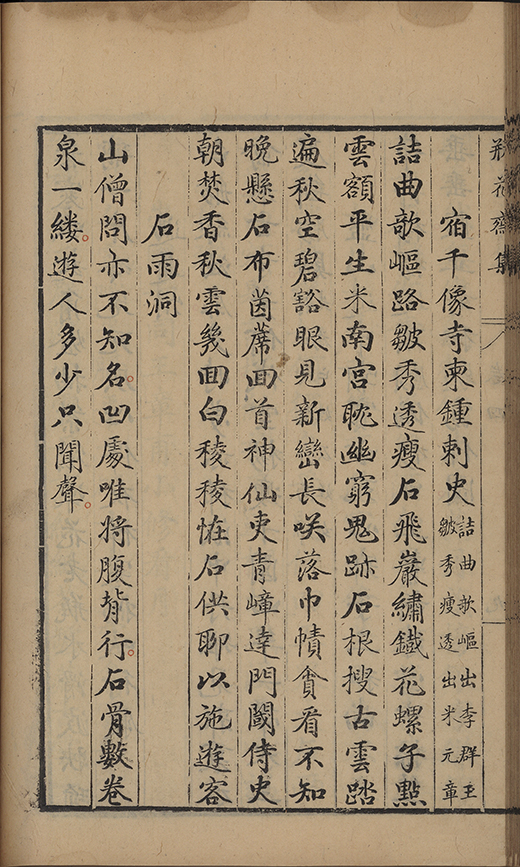 瓶花齋集
宿千像寺柬鍾刺史
詰曲欹嶇出李群玉
皺秀瘦透出米元章
詰曲欹嶇路皺秀透瘦石飛巖繡鐵花螺子點
雲額平生米南宮耽幽窮鬼跡石根搜古雲踏
遍秋空碧豁眼見新巒長咲落巾幘貪看不知
晚懸石布茵蓆囬首神仙吏青嶂達門閾侍史
朝焚香秋雲幾囬白稜稜恠石供聊以施遊客
石雨洞
山僧問亦不知名凹處唯將腹背行石骨數卷
泉一縷遊人多少只聞聲